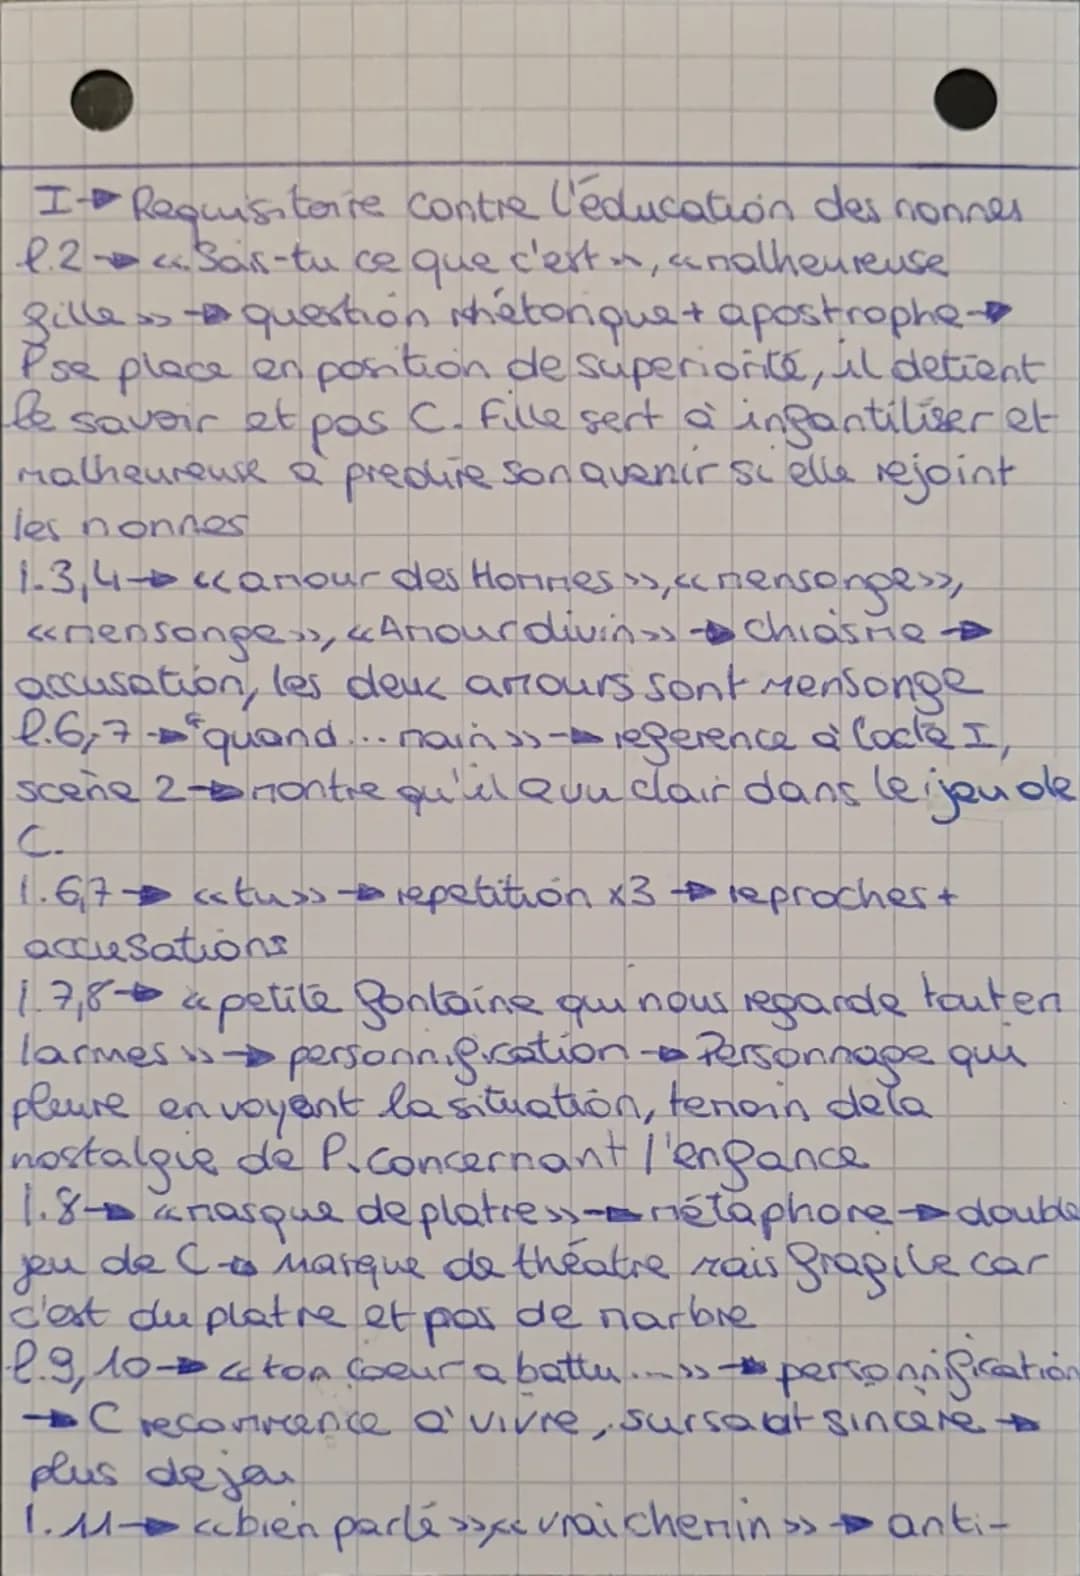 I→ Requisitoire contre l'éducation des nonnes
l.2 → «Sais-tu ce que c'est», «malheureuse
fille» → question rhétorique + apostrophe →
P se place en position de superiorité, il detient
le savoir et pas C. Fille sert à infantiliser et
malheureuse à predire son avenir si elle rejoint
les nonnes
l.3,4 → «amour des Hommes», «mensonge»,
«mensonge», «Amour divin» → chiasme →
accusation, les deux amours sont mensonge
l.6,7 → "quand... main» → reference à l'acte I,
scène 2 → montre qu'il a vu clair dans le jeu de
C.
l.6,7 → «tu» → repetition x3 → reproches +
accusations
l.7,8 → «petite fontaine qui nous regarde tout en
larmes» → personnification → Personnage qui
pleure en voyant la situation, temoin de la
nostalgie de P. concernant l'enfance
l.8 → «masque de platre» → métaphore → double
jeu de C → Marque de théatre mais fragile car
c'est du platre et pas de marbre
l.9,10 → «ton coeur a battu...» → personnification
→ C recommence à vivre, sursaut sincère →
plus de jeu
l.11 → «bien parlé»≠«vrai chemin» → anti-